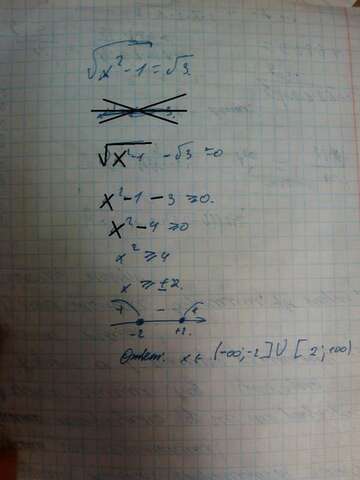 √x²-1 = √3.
√x²-1 - √3 = 0
x²-1-3 ⩾ 0.
x²-4 ⩾ 0
x² ⩾ 4
x ⩾ ±2.
+ - +
-2 +2.
Ответ. x ∈ (-∞; -2] ∪ [2; +∞)